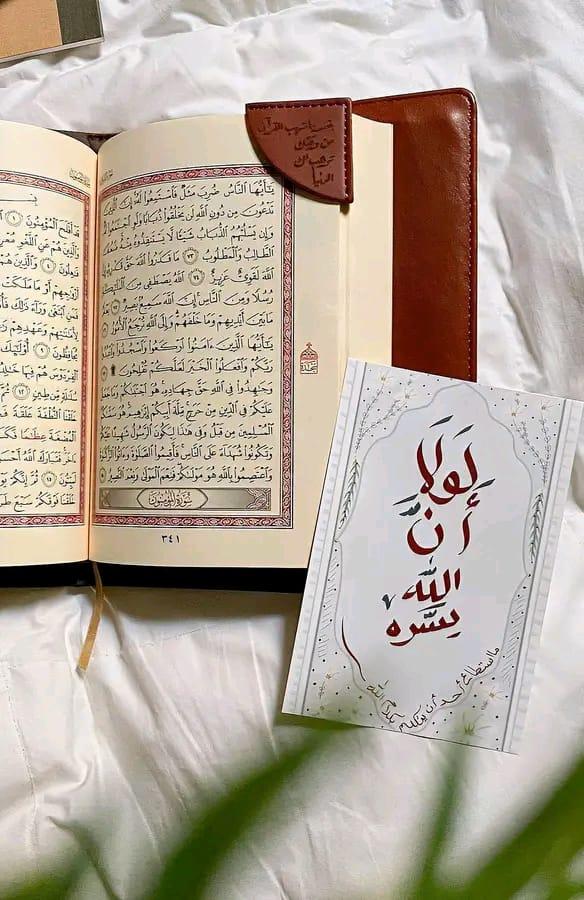 يَٰٓأَيُّهَا ٱلنَّاسُ ضُرِبَ مَثَلٌ فَٱسْتَمِعُوا۟ لَهُۥٓ إِنَّ ٱلَّذِينَ
تَدْعُونَ مِن دُونِ ٱللَّهِ لَن يَخْلُقُوا۟ ذُبَابًا وَلَوِ ٱجْتَمَعُوا۟
وَإِن يَسْلُبْهُمُ ٱلذُّبَابُ شَيْـًٔا لَّا يَسْتَنقِذُوهُ مِنْهُ ضَعُفَ
ٱلطَّالِبُ وَٱلْمَطْلُوبُ ٧٣ مَا قَدَرُوا۟ ٱللَّهَ حَقَّ قَدْرِهِۦٓ
ٱللَّهَ لَقَوِىٌّ عَزِيزٌ ٧٤ ٱللَّهُ يَصْطَفِى مِنَ ٱلْمَلَٰٓئِكَةِ
رُسُلًا وَمِنَ ٱلنَّاسِ إِنَّ ٱللَّهَ سَمِيعٌۢ بَصِيرٌ ٧٥
مَا بَيْنَ أَيْدِيهِمْ وَمَا خَلْفَهُمْ وَإِلَى ٱللَّهِ تُرْجَعُ ٱلْأُمُورُ
يَٰٓأَيُّهَا ٱلَّذِينَ ءَامَنُوا۟ ٱرْكَعُوا۟ وَٱسْجُدُوا۟ وَٱعْبُدُوا۟
رَبَّكُمْ وَٱفْعَلُوا۟ ٱلْخَيْرَ لَعَلَّكُمْ تُفْلِحُونَ
وَجَٰهِدُوا۟ فِى ٱللَّهِ حَقَّ جِهَادِهِۦ هُوَ ٱجْتَبَىٰكُمْ وَمَا جَعَلَ
عَلَيْكُمْ فِى ٱلدِّينِ مِنْ حَرَجٍ مِّلَّةَ أَبِيكُمْ إِبْرَٰهِيمَ هُوَ سَمَّىٰكُمُ
ٱلْمُسْلِمِينَ مِن قَبْلُ وَفِى هَٰذَا لِيَكُونَ ٱلرَّسُولُ شَهِيدًا عَلَيْكُمْ
وَتَكُونُوا۟ شُهَدَآءَ عَلَى ٱلنَّاسِ فَأَقِيمُوا۟ ٱلصَّلَوٰةَ وَءَاتُوا۟ ٱلزَّكَوٰةَ
وَٱعْتَصِمُوا۟ بِٱللَّهِ هُوَ مَوْلَىٰكُمْ فَنِعْمَ ٱلْمَوْلَىٰ وَنِعْمَ ٱلنَّصِيرُ
سُورَةُ المُؤْمِنُونَ
٣٤١
سجدة
قَدْ أَفْلَحَ ٱلْمُؤْمِنُونَ ١
وَٱلَّذِينَ هُمْ عَنِ ٱللَّغْوِ
فَٰعِلُونَ ٤ وَٱلَّذِينَ هُمْ
أَزْوَٰجِهِمْ أَوْ مَا مَلَكَتْ
فَمَنِ ٱبْتَغَىٰ وَرَآءَ ذَٰلِكَ
لِأَمَٰنَٰتِهِمْ وَعَهْدِهِمْ
يُحَافِظُونَ ٩ أُو۟لَٰٓئِكَ
ٱلْفِرْدَوْسَ هُمْ فِيهَا
سُلَٰلَةٍ مِّن طِينٍ ١٢
خَلَقْنَا ٱلنُّطْفَةَ عَلَقَةً
ٱلْمُضْغَةَ عِظَٰمًا فَكَسَوْنَا
لَوْلَا
أَنَّ
اللَّه
يسَّره
ما استطاع أحد أن يتكلم بكلام الله